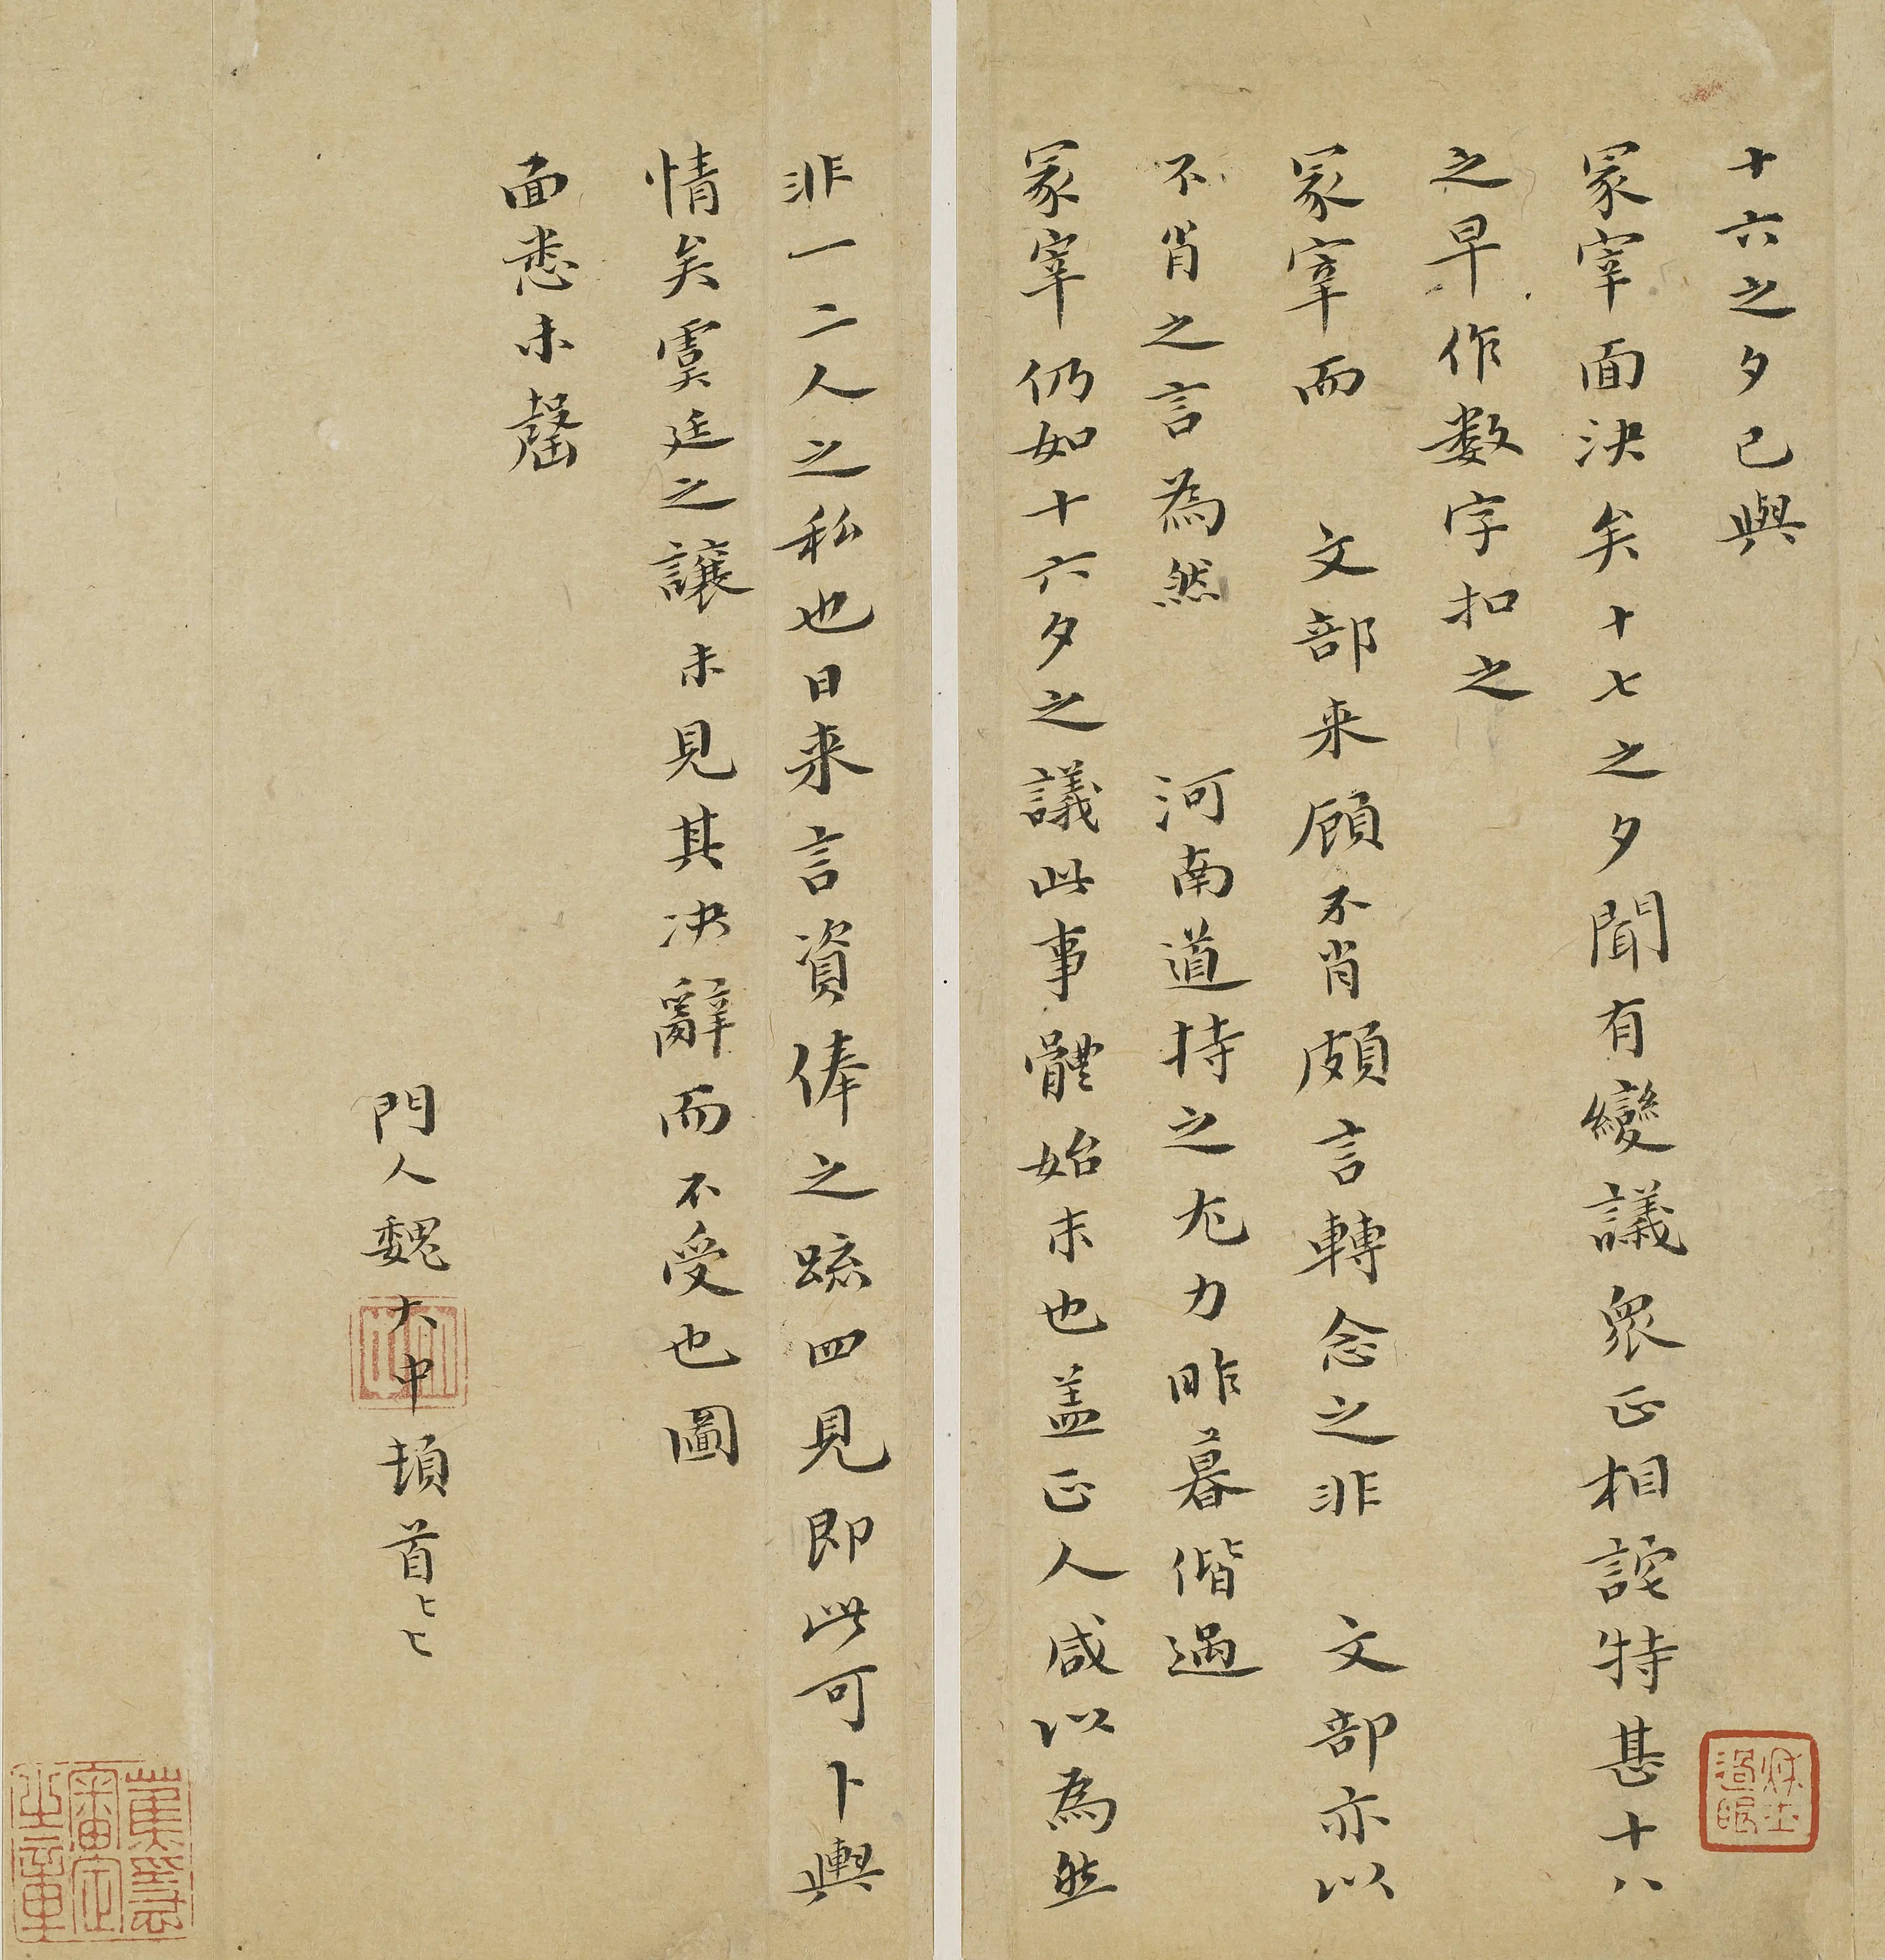 十六之夕已與
冢宰面決矣十七之夕聞有變議眾正相詫特甚十八
之早作数字扣之
冢宰而 文部来顧不肖頗言轉念之非 文部亦以
不肖之言為然 河南道持之尤力昨暮偕過
冢宰仍如十六夕之議此事體始末也盖正人咸以為然
非一二人之私也日来言資俸之疏四見即此可卜輿
情矣虞廷之讓未見其決辭而不受也圖
面悉未罄
門人魏大中頓首〻〻